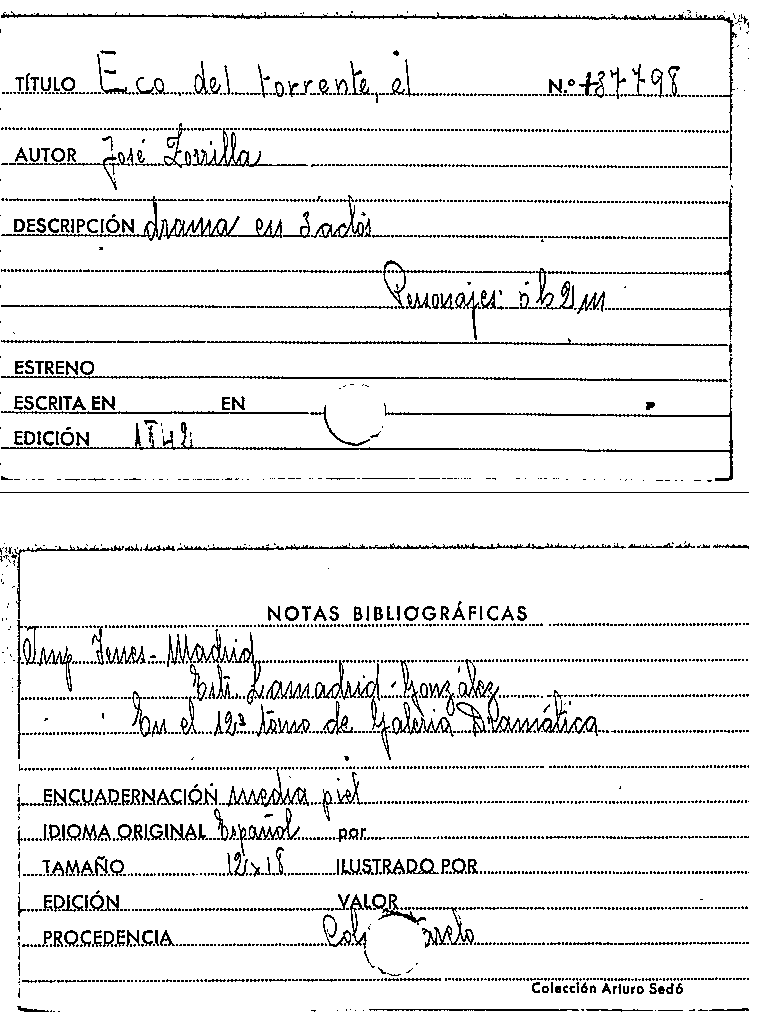 TÍTULO Eco del torrente, el N.º 137798
AUTOR José Zorrilla
DESCRIPCIÓN drama en 3 actos
Personajes: 5 h 2 m
ESTRENO
ESCRITA EN EN P
EDICIÓN 1842
NOTAS BIBLIOGRÁFICAS
Imp Yenes - Madrid
Estr Lamadrid - González
En el 12º tomo de Galeria Dramática
ENCUADERNACIÓN media piel
IDIOMA ORIGINAL Español por
TAMAÑO 12x18 ILUSTRADO POR
EDICIÓN VALOR
PROCEDENCIA
Colección Arturo Sedó